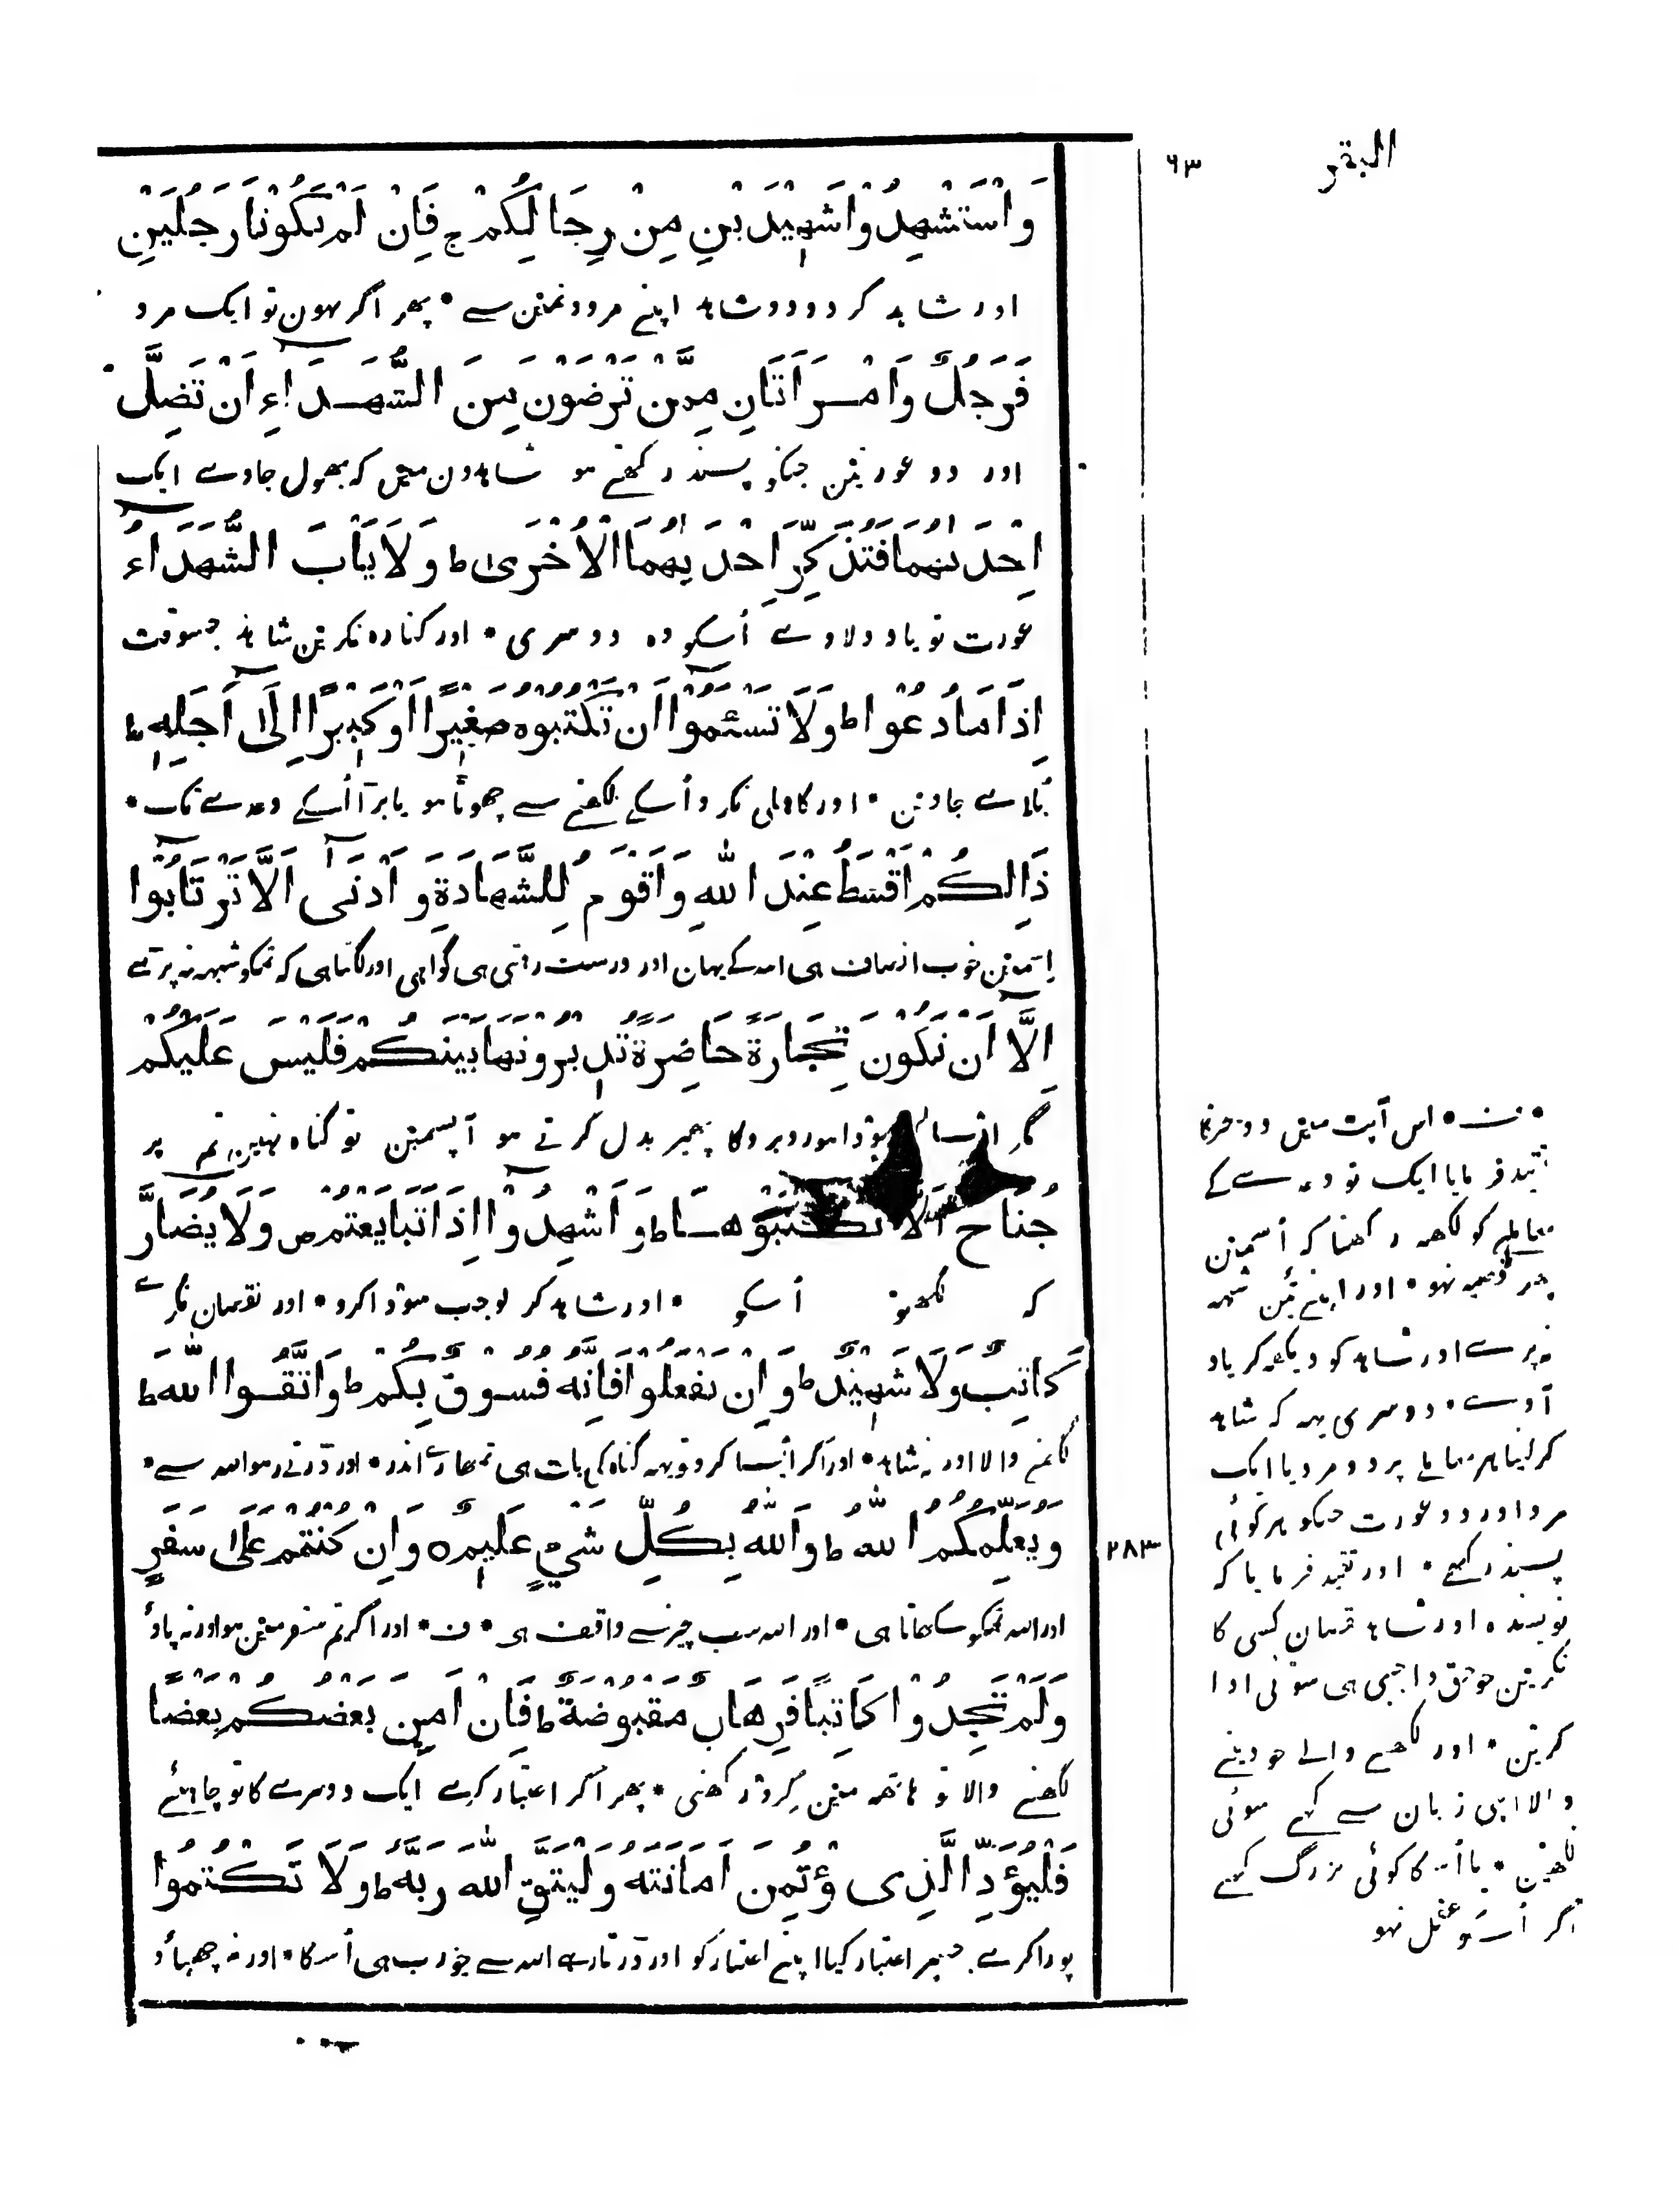 البقر ٦٣
وَاسْتَشْهِدُوْا شَهِيْدَيْنِ مِنْ رِجَالِكُمْ ج فَاِنْ لَمْ يَكُوْنَا رَجُلَيْنِ
اور شاہد کر دو دو شاہد اپنے مردو نمین سے * پھر اگر نہون تو ایک مرد
فَرَجُلٌ وَامْرَاَتَانِ مِمَّنْ تَرْضَوْنَ مِنَ الشُّهَدَاءِ اَنْ تَضِلَّ
اور دو عورتین جنکو پسند رکھتے ہو شاہدون مین کہ بھول جاوے ایک
اِحْدٰىهُمَا فَتُذَكِّرَ اِحْدٰىهُمَا الْاُخْرٰى ط وَلَا يَاْبَ الشُّهَدَاءُ
عورت تو یاد دلاوے اُسکو وہ دوسری * اور کنارہ نکرین شاہد جسوقت
اِذَا مَا دُعُوْا ط وَلَا تَسْئَمُوْا اَنْ تَكْتُبُوْهُ صَغِيْرًا اَوْ كَبِيْرًا اِلٰى اَجَلِهٖ ط
بُلاے جاوین * اور کاہلی نکرو اُسکے لکھنے سے چھوٹا ہو یا بڑا اُسکے وعدے تک *
ذَالِكُمْ اَقْسَطُ عِنْدَ اللهِ وَاَقْوَمُ لِلشَّهَادَةِ وَ اَدْنٰى اَلَّا تَرْتَابُوْا
اِسمین خوب انصاف ہی اللہ کے یہان اور درست رہتی ہی گواہی اور لگتا ہی کہ تمکو شبہہ نہ پڑے
اِلَّا اَنْ تَكُوْنَ تِجَارَةً حَاضِرَةً تُدِيْرُوْنَهَا بَيْنَكُمْ فَلَيْسَ عَلَيْكُمْ
مگر ایسا سودا ہو روبرو کا پھیر بدل کرتے ہو آپسمین تو گناہ نہین تم پر
جُنَاحٌ اَلَّا تَكْتُبُوْهَا ط وَاَشْهِدُوْا اِذَا تَبَايَعْتُمْ ص وَلَا يُضَارَّ
کہ نلکھو اُسکو * اور شاہد کر لو جب سودا کرو * اور نقصان نکرے
كَاتِبٌ وَلَا شَهِيْدٌ ط وَاِنْ تَفْعَلُوْا فَاِنَّهُ فُسُوْقٌ بِكُمْ ط وَاتَّقُوا اللهَ ط
لکھنے والا اور نہ شاہد * اور اگر ایسا کرو تو یہہ گناہ کی بات ہی تمھارے اندر * اور ڈرتے رہو اللہ سے *
وَيُعَلِّمُكُمُ اللهُ ط وَاللهُ بِكُلِّ شَيْءٍ عَلِيْمٌ ه وَاِنْ كُنْتُمْ عَلٰى سَفَرٍ
٢٨٣
اور اللہ تمکو سکھاتا ہی * اور اللہ سب چیز سے واقف ہی * ف * اور اگر تم سفر مین ہو اور نہ پاؤ
وَلَمْ تَجِدُوْا كَاتِبًا فَرِهَانٌ مَقْبُوْضَةٌ ط فَاِنْ اَمِنَ بَعْضُكُمْ بَعْضًا
لکھنے والا تو ہاتھہ مین گرو رکھنی * پھر اگر اعتبار کرے ایک دوسرے کا تو چاہئے
فَلْيُؤَدِّ الَّذِى ؤْتُمِنَ اَمَانَتَهُ وَلْيَتَّقِ اللهَ رَبَّهُ ط وَلَا تَكْتُمُوا
پورا کرے جسپر اعتبار کیا اپنے اعتبار کو اور ڈرتا رہے اللہ سے جو رب ہی اُسکا * اور نہ چھپاؤ
* ف * اس آیت مین دو چیز کا
تقید فرمایا ایک تو وعدے کے
معاملے کو لکھہ رکھنا کہ اُسمین
پھر قضیہ نہو * اور اپنے تئین شبہہ
نہ پڑے اور شاہد کو دیکھہ کر یاد
آوے * دوسری یہہ کہ شاہد
کر لینا ہر معاملے پر دو مرد یا ایک
مرد اور دو عورت جنکو ہر کوئی
پسند رکھے * اور تقید فرمایا کہ
نویسندہ اور شاہد نقصان کسی کا
نکرین جو حق واجبی ہی سو ہی ادا
کرین * اور لکھنے والے جو دینے
والا اپنی زبان سے کہے سو ہی
لکھین * یا اُسکا کوئی بزرگ کہے
اگر اُسکو عقل نہو